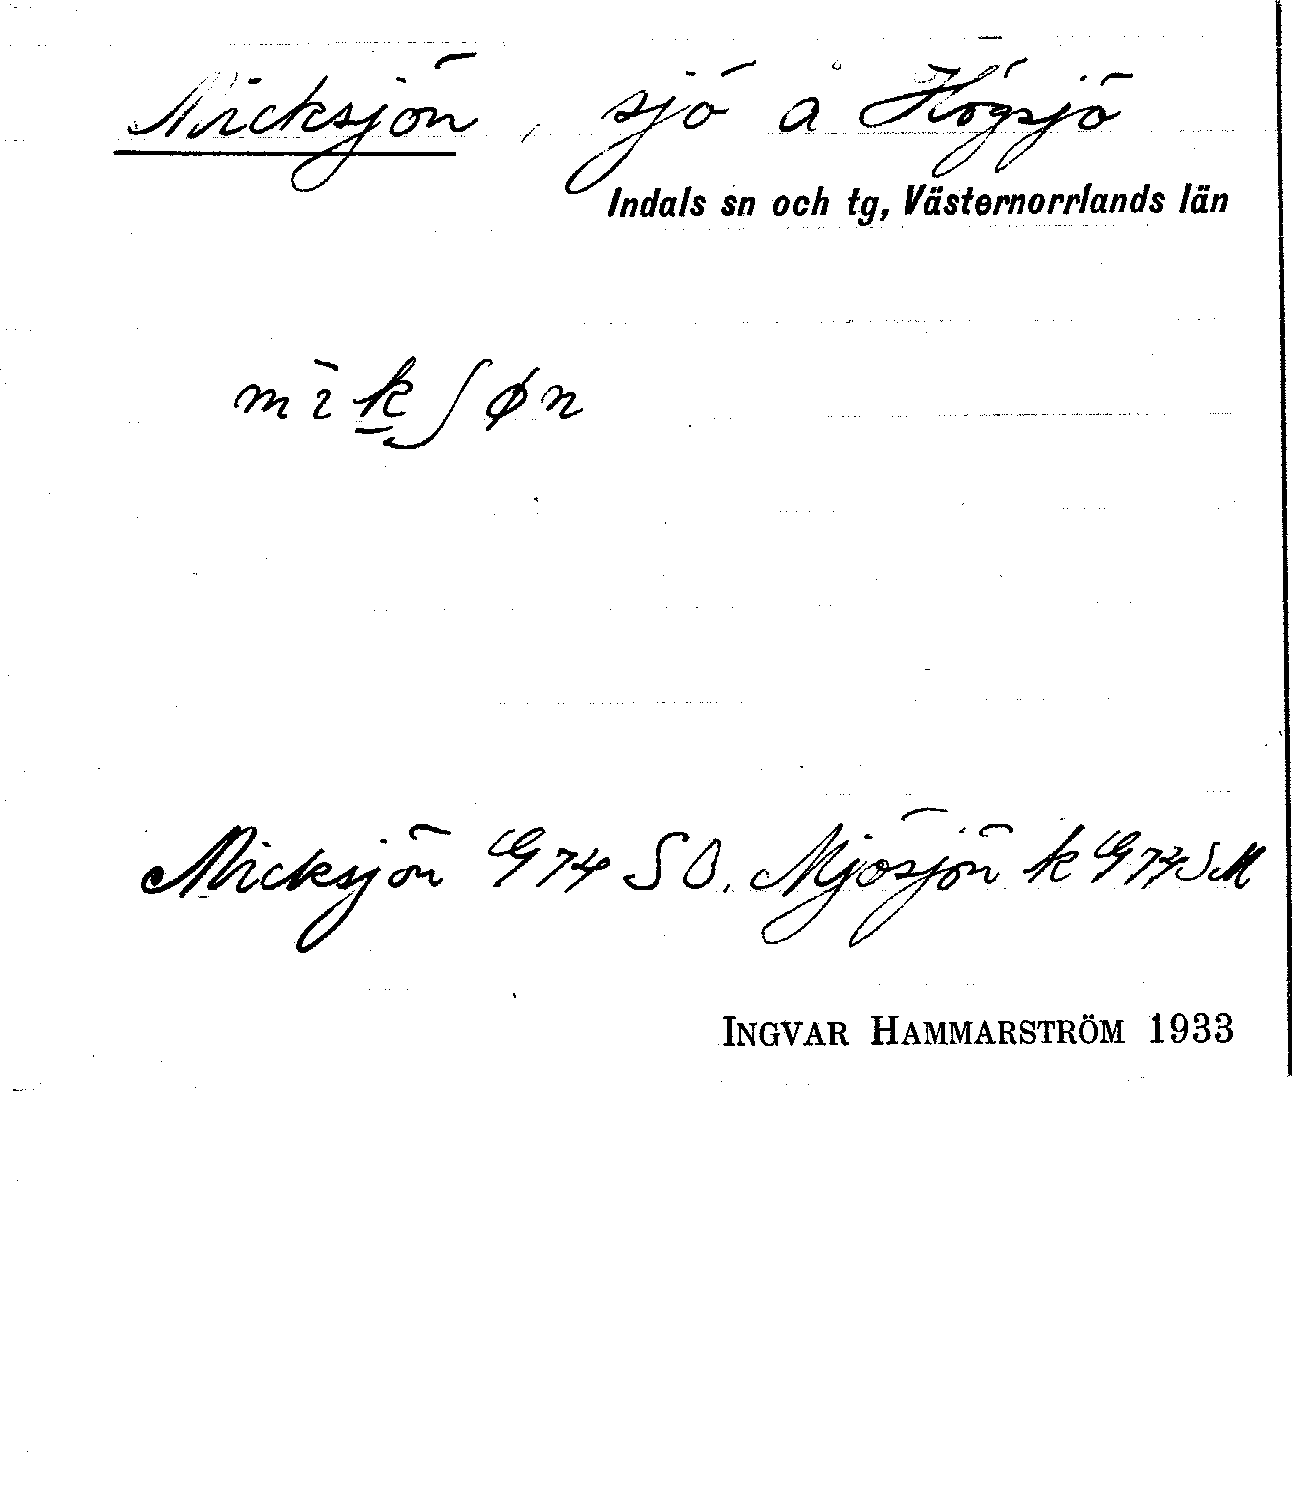 Micksjön, sjö å Högsjö
Indals sn och tg, Västernorrlands län
mik ʃøn
Micksjön G 74 SO. Mjösjön k G 74 SM
INGVAR HAMMARSTRÖM 1933